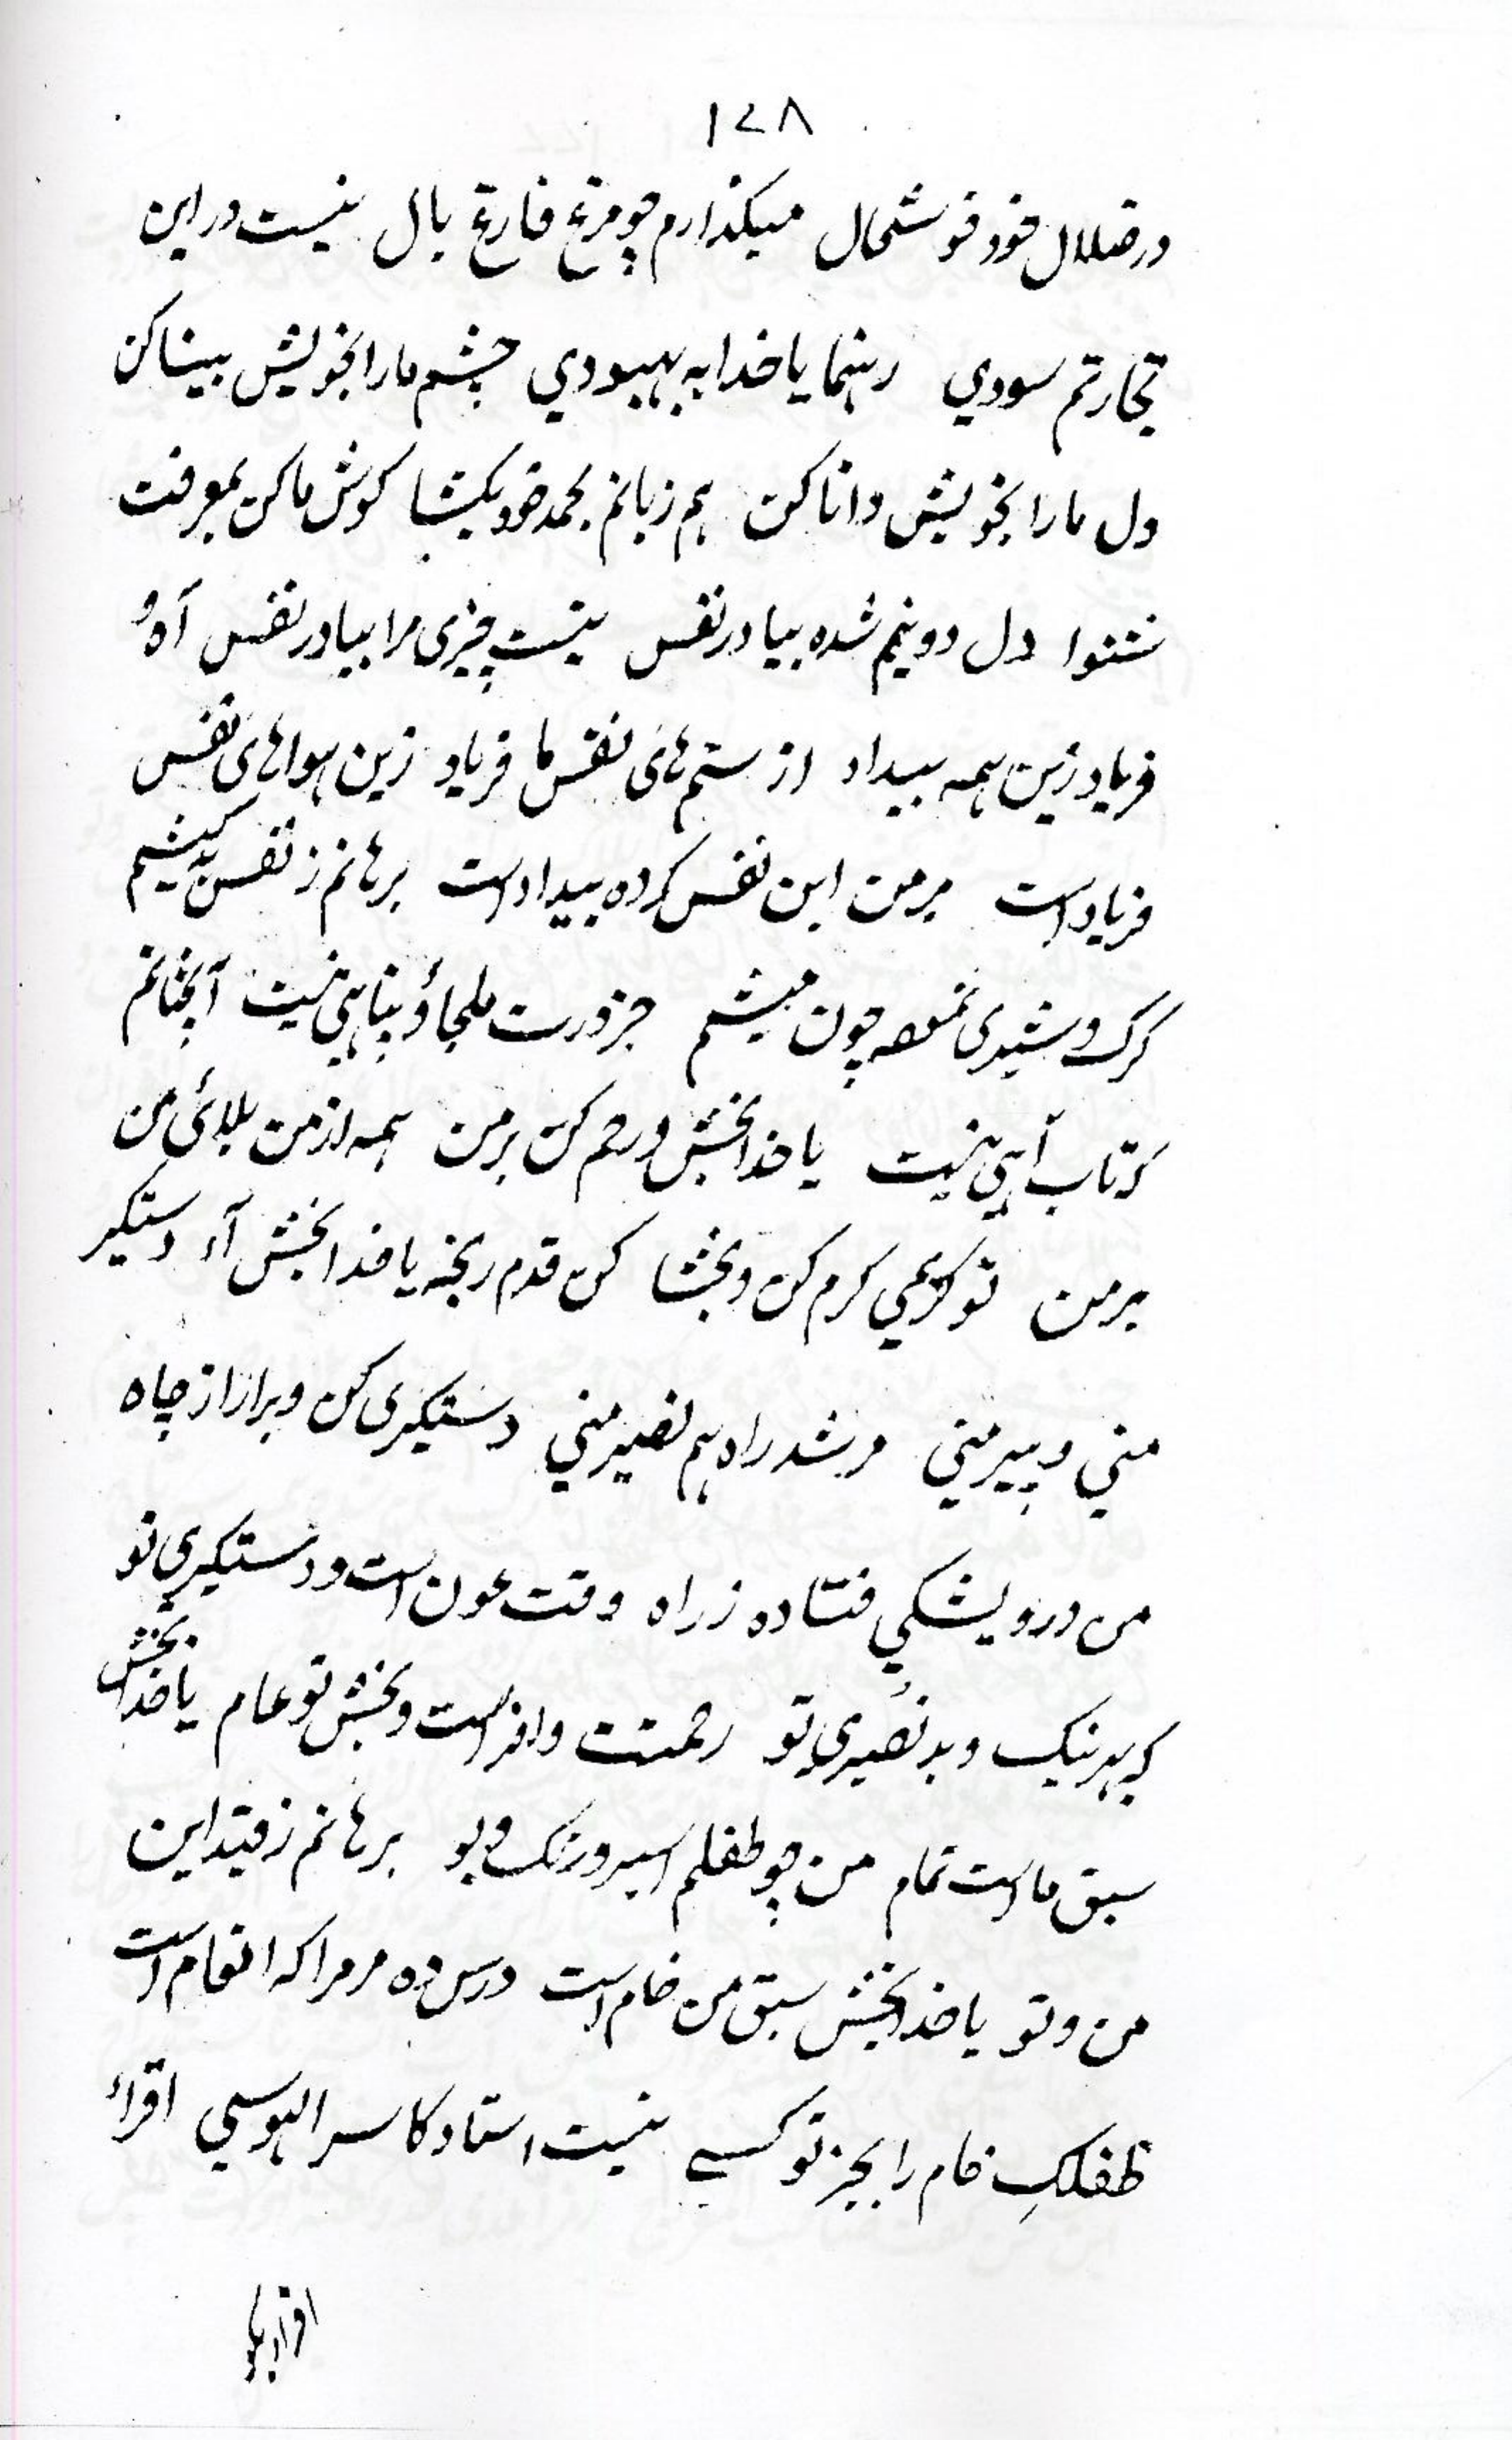 ۱۷۸
در ضلال خود خوشحال میکذارم چو مرغ فارغ بال نیست در این
تجارتم سودي رهنما یا خدا به بهبودي چشم ما را بخویش بینا کن
دل ما را بخویش دانا کن هم زبانم بحمد خود بکشا کوش ما کن بمعرفت
شنوا دل دو نیم شده بیا در نفس نیست چیزی مرا بیا در نفس آه و
فریاد زین همه بیداد از ستم های نفس ما فریاد زین هواهای نفس
فریاد است بر من این نفس کرده بیداد است برهانم ز نفس بد کیشم
کرک و شیدی نموه چون میشم جز درت ملجاؤ پناهی نیست آنچنانم
که تاب آهی نیست یا خدا بخش و رحم کن بر من همه از من بلائی من
بر من تو کریمي کرم کن و بخشا کن قدم رنجه یا خدا بخش آء دستکیر
مني و پیر مني مرشد راه هم نصیر مني دستکیری کن و برار از چاه
من درویشکي فتاده ز راه وقت عون است و دستکیري تو
که بهر نیک و بد نصیري تو رحمتت وافر است و بخش تو عام یا خدا بخش
سبق ما است تمام من چو طفلم اسیر و رنک و بو برهانم ز قید این
من و تو یا خدا بخش سبق من خام است درس ده مر مرا که انعام است
طفلکِ خام را بجز تو کسے نیست استاد کاسر الهوسي اقراء
اقراء بکو